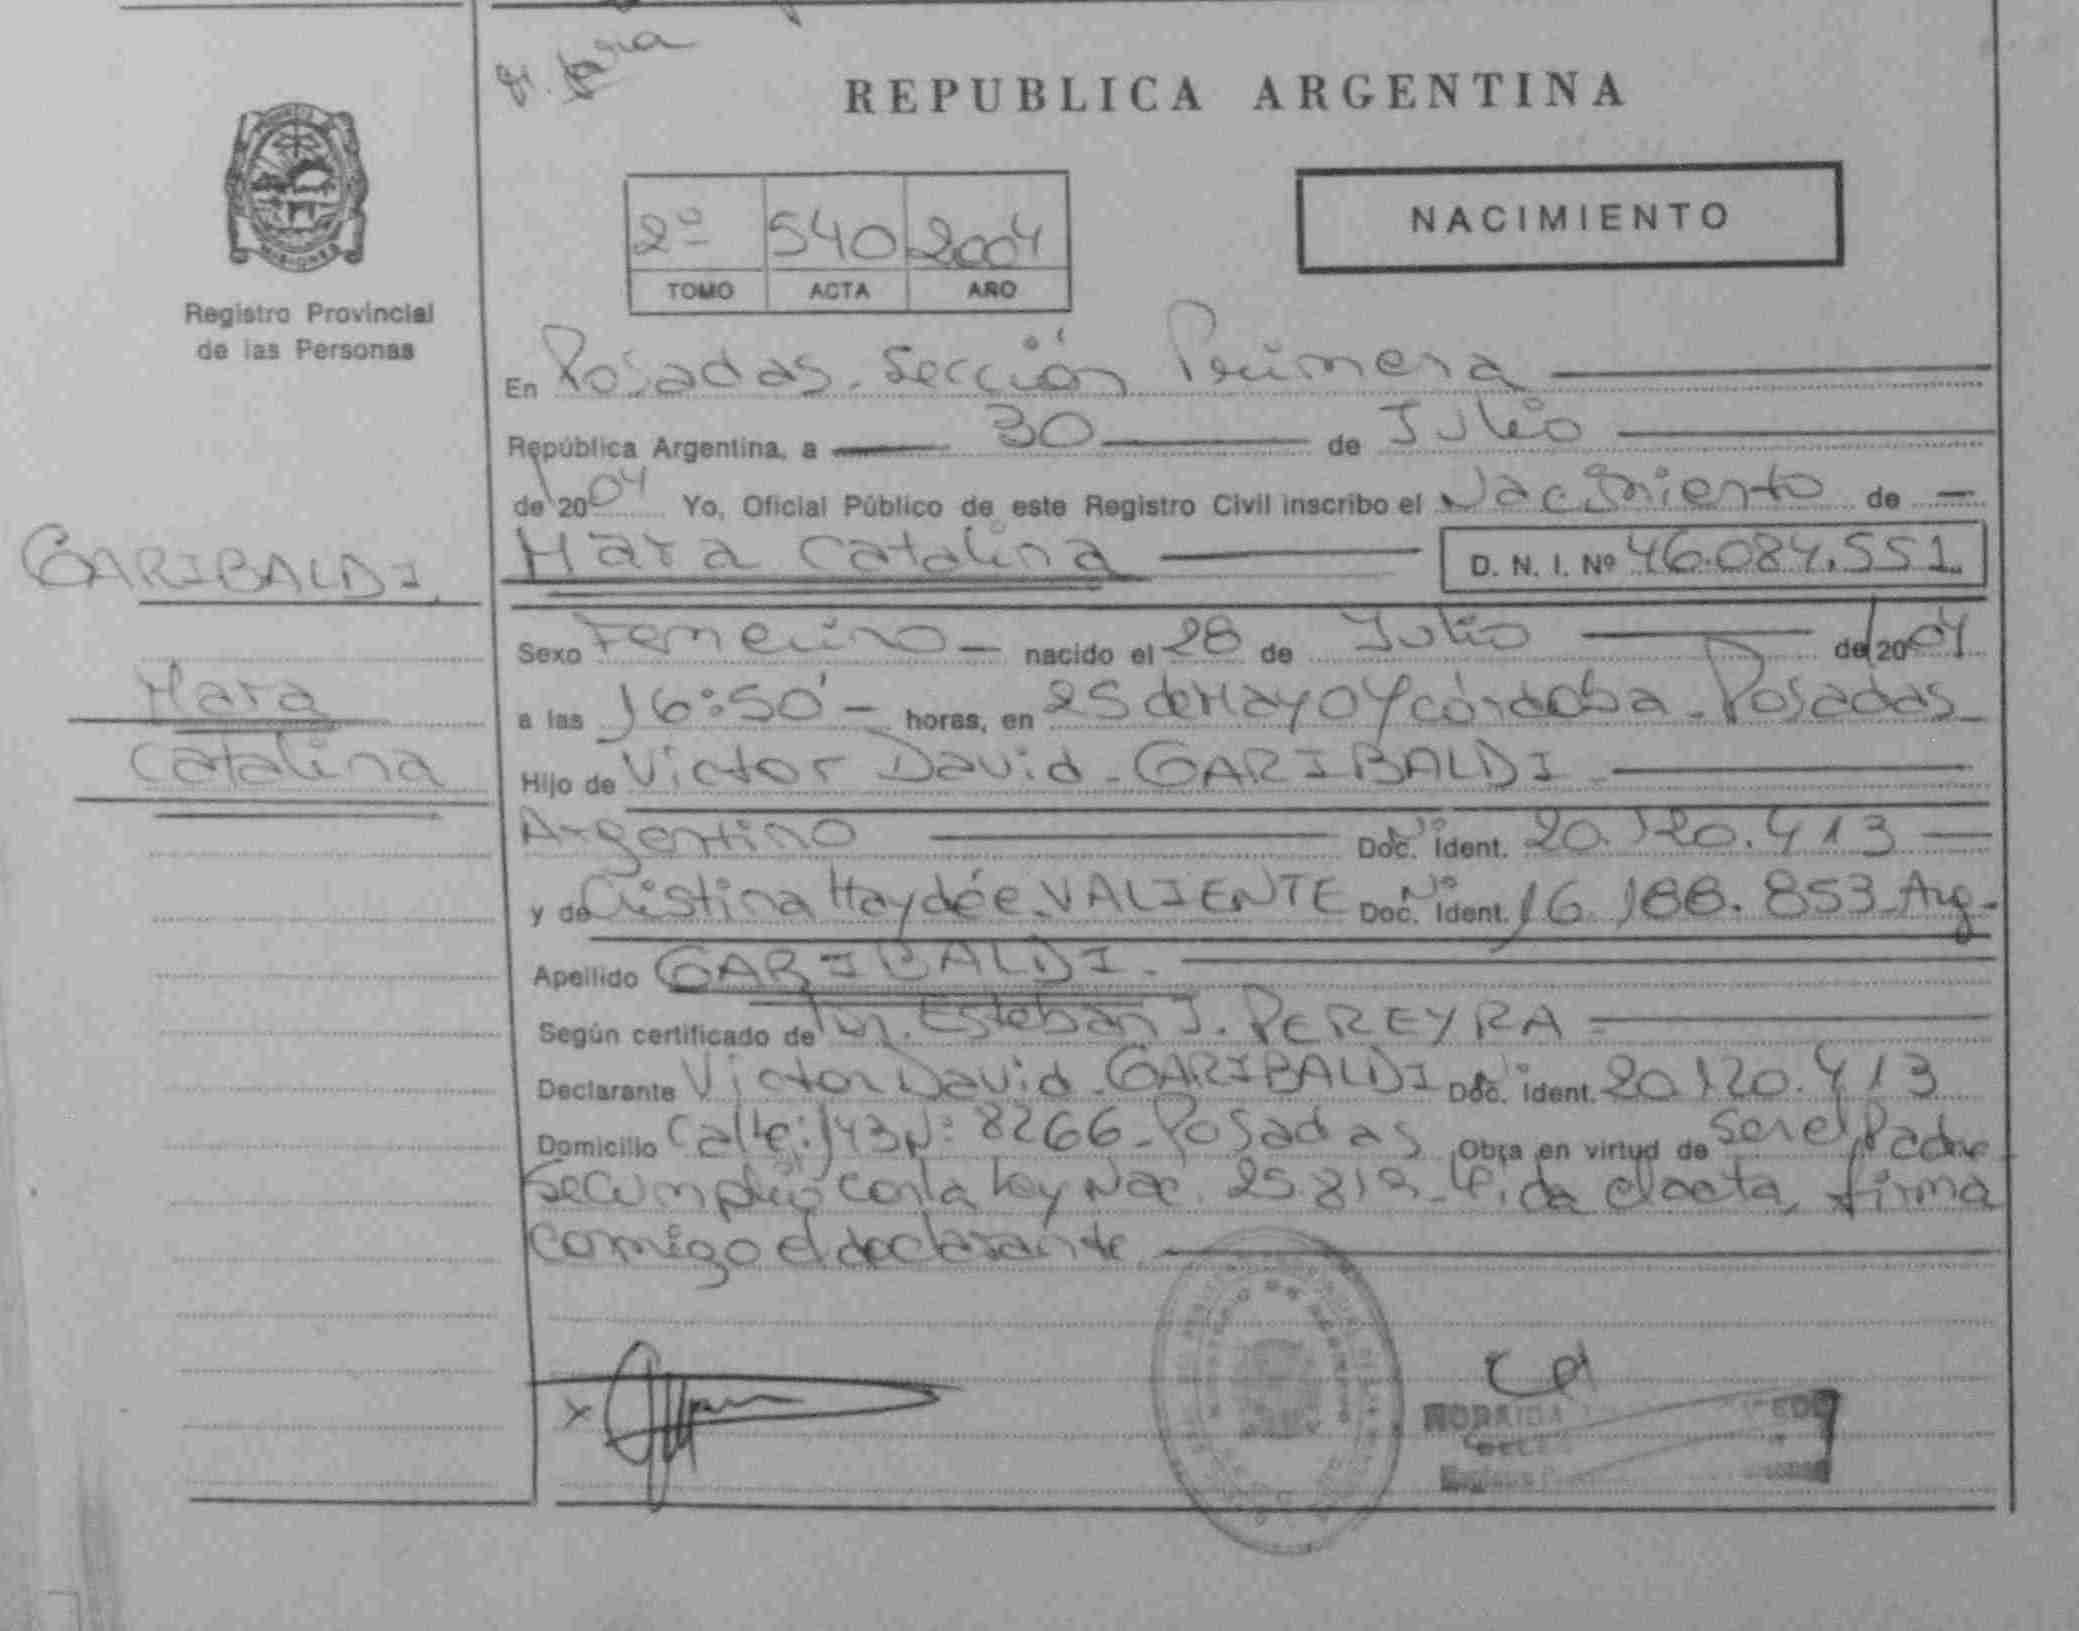 REPUBLICA ARGENTINA
MISIONES
Registro Provincial
de las Personas
NACIMIENTO
2º 540 2004
TOMO ACTA AÑO
En Posadas. Sección Primera
República Argentina, a 30 de Julio
de 2004 Yo, Oficial Público de este Registro Civil inscribo el Nacimiento de
GARIBALDI
Mara Catalina D. N. I. Nº 46.084.551
Mara
Catalina
Sexo Femenino nacido el 28 de Julio de 2004
a las 16:50' horas, en 25 de Mayo y córdoba - Posadas
Hijo de Victor David - GARIBALDI
Argentino Nº Doc. Ident. 20.120.413
y de Cristina Haydée VALIENTE Nº Doc. Ident. 16.188.853 - Arg -
Apellido GARIBALDI
Según certificado de Dr. Esteban J. PEREYRA
Declarante Victor David - GARIBALDI Doc. Ident. 20.120.413
Domicilio Calle: 143 Nº: 8266 - Posadas Obra en virtud de Ser el Padre
Se Cumplió con la Ley Nac. 25.819 - Leida el acta, firma
comigo el declarante